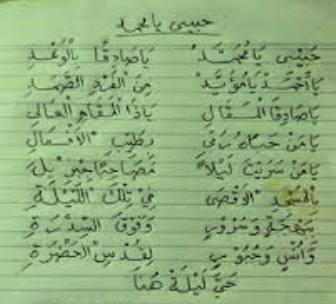 حبيبي يا محمد
حَبِيْبِي يَا مُحَمَّد يَا صَادِقًا بِالْوَعْدِ
يَا أَحْمَد يَا مُؤَيَّد مِنَ الْفَرْدِ الصَّمَدِ
يَا صَادِقَ الْمَقَالِ يَا ذَا الْمَقَامِ الْعَالِي
يَا مَنْ حَبَاهُ رَبِّي بِطَيِّبِ الْأَفْعَالِ
يَا مَنْ سَرَيْتَ لَيْلاً مُصَاحِبًا جِبْرِيْلَ
بِالْمَسْجِدِ الْأَقْصَى فِيْ تِلْكَ اللَّيْلَةِ
وَفَوْقَ السِّدْرَةِ
لِقُدْسِ الْحَضْرَةِ
لَيْلَة هُنَا